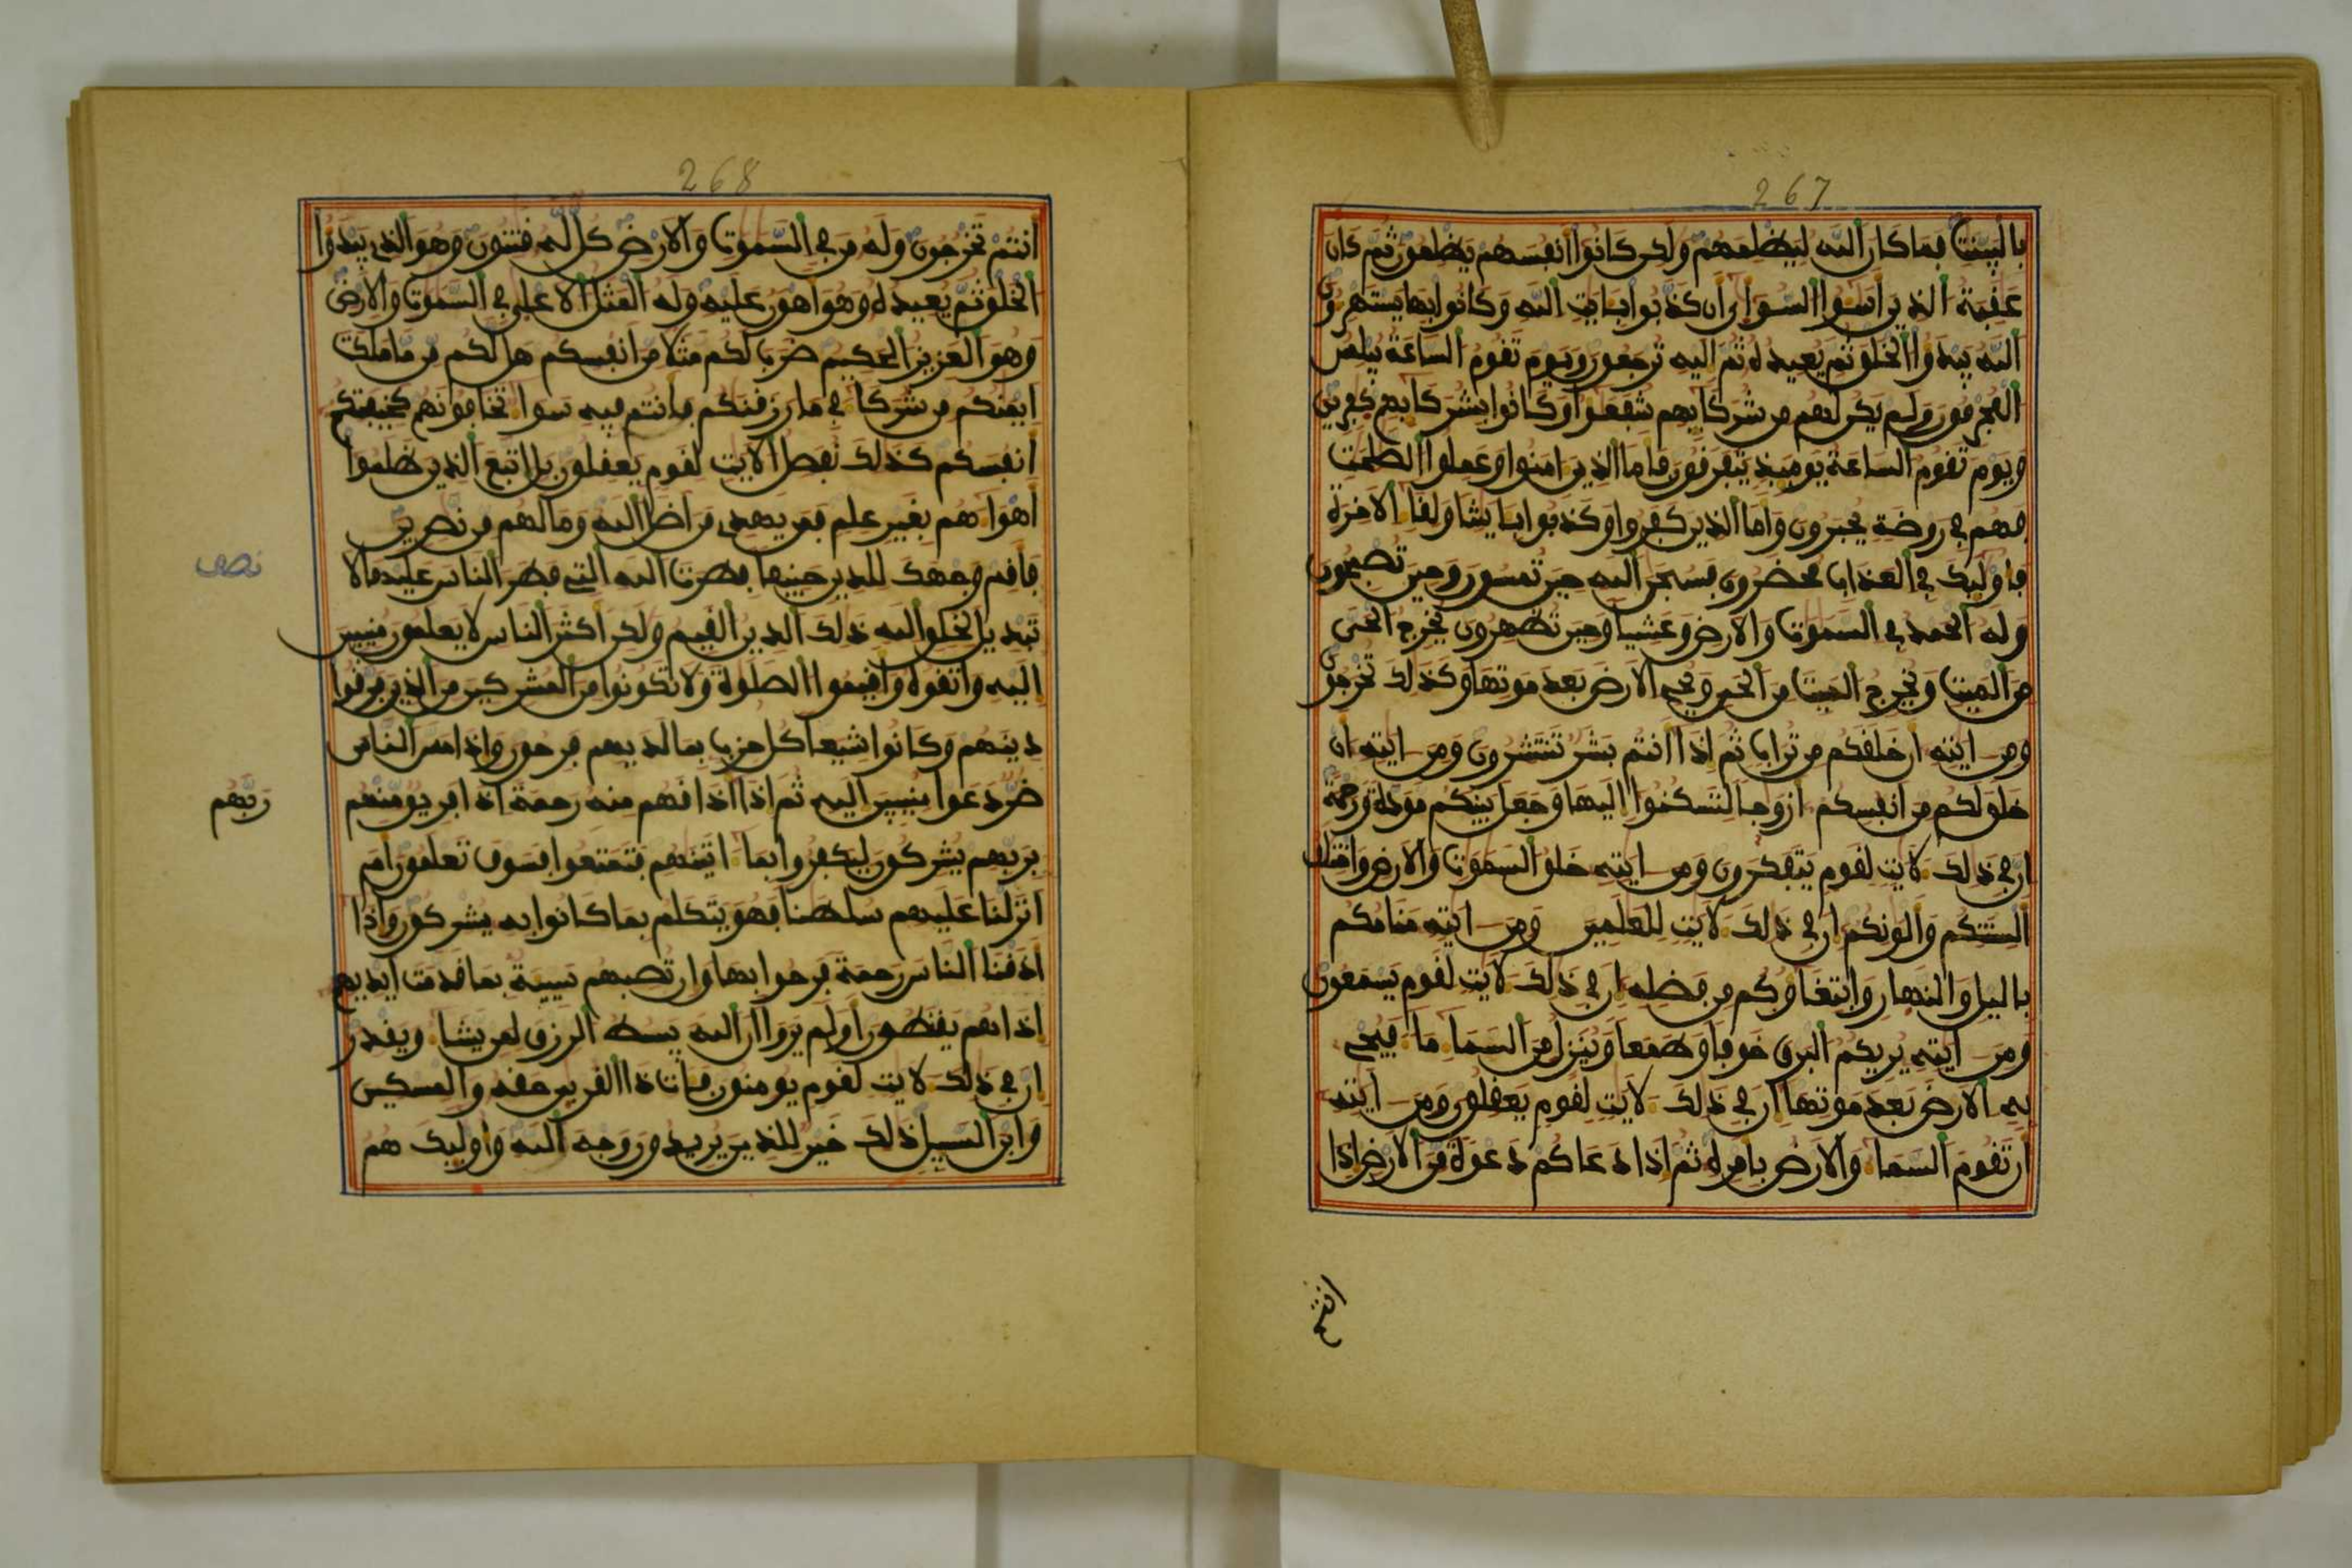 267
بالبينت فما كان الله ليظلمهم ولكن كانوا أنفسهم يظلمون ثم كان
عقبة الذين اسوا السوأى ان كذبوا بايت الله وكانوا بها يستهزون
الله يبدؤا الخلق ثم يعيده ثم اليه ترجعون ويوم تقوم الساعة يبلس
المجرمون ولم يكن لهم من شركايهم شفعوا وكانوا بشركايهم كفرين
ويوم تقوم الساعة يوميذ يتفرقون فاما الذين امنوا وعملوا الصلحت
فهم في روضة يحبرون واما الذين كفروا وكذبوا بايتنا ولقاء الاخرة
فاوليك في العذاب محضرون فسبحن الله حين تمسون وحين تصبحون
وله الحمد في السموت والارض وعشيا وحين تظهرون يخرج الحي
من الميت ويخرج الميت من الحي ويحي الارض بعد موتها وكذلك تخرجون
ومن ايته ان خلقكم من تراب ثم اذا انتم بشر تنتشرون ومن ايته ان
خلق لكم من انفسكم ازوجا لتسكنوا اليها وجعل بينكم مودة ورحمة
ان في ذلك لايت لقوم يتفكرون ومن ايته خلق السموت والارض واختلف
السنتكم والونكم ان في ذلك لايت للعلمين ومن ايته منامكم
باليل والنهار وابتغاؤكم من فضله ان في ذلك لايت لقوم يسمعون
ومن ايته يريكم البرق خوفا وطمعا وينزل من السماء ماء فيحي
به الارض بعد موتها ان في ذلك لايت لقوم يعقلون ومن ايته
ان تقوم السماء والارض بامره ثم اذا دعاكم دعوة من الارض اذا
انتم
268
انتم تخرجون وله من في السموت والارض كل له قنتون وهو الذي يبدؤا
الخلق ثم يعيده وهو اهون عليه وله المثل الاعلى في السموت والارض
وهو العزيز الحكيم ضرب لكم مثلا من انفسكم هل لكم من ما ملكت
ايمنكم من شركاء في ما رزقنكم فانتم فيه سواء تخافونهم كخيفتكم
انفسكم كذلك نفصل الايت لقوم يعقلون بل اتبع الذين ظلموا
اهواءهم بغير علم فمن يهدي من اضل الله وما لهم من نصرين
فاقم وجهك للدين حنيفا فطرت الله التي فطر الناس عليها لا
نصف
تبديل لخلق الله ذلك الدين القيم ولكن اكثر الناس لا يعلمون منيبين
اليه واتقوه واقيموا الصلوة ولا تكونوا من المشركين من الذين فرقوا
دينهم وكانوا شيعا كل حزب بما لديهم فرحون واذا مس الناس
ضر دعوا منيبين اليه ثم اذا اذاقهم منه رحمة اذا فريق منهم
ربهم
بربهم يشركون ليكفروا بما اتينهم فتمتعوا فسوف تعلمون ام
انزلنا عليهم سلطنا فهو يتكلم بما كانوا به يشركون واذا
اذقنا الناس رحمة فرحوا بها وان تصبهم سيية بما قدمت ايديهم
اذا هم يقنطون اولم يروا ان الله يبسط الرزق لمن يشاء ويقدر
ان في ذلك لايت لقوم يومنون فات ذا القربى حقه والمسكين
وابن السبيل ذلك خير للذين يريدون وجه الله واوليك هم